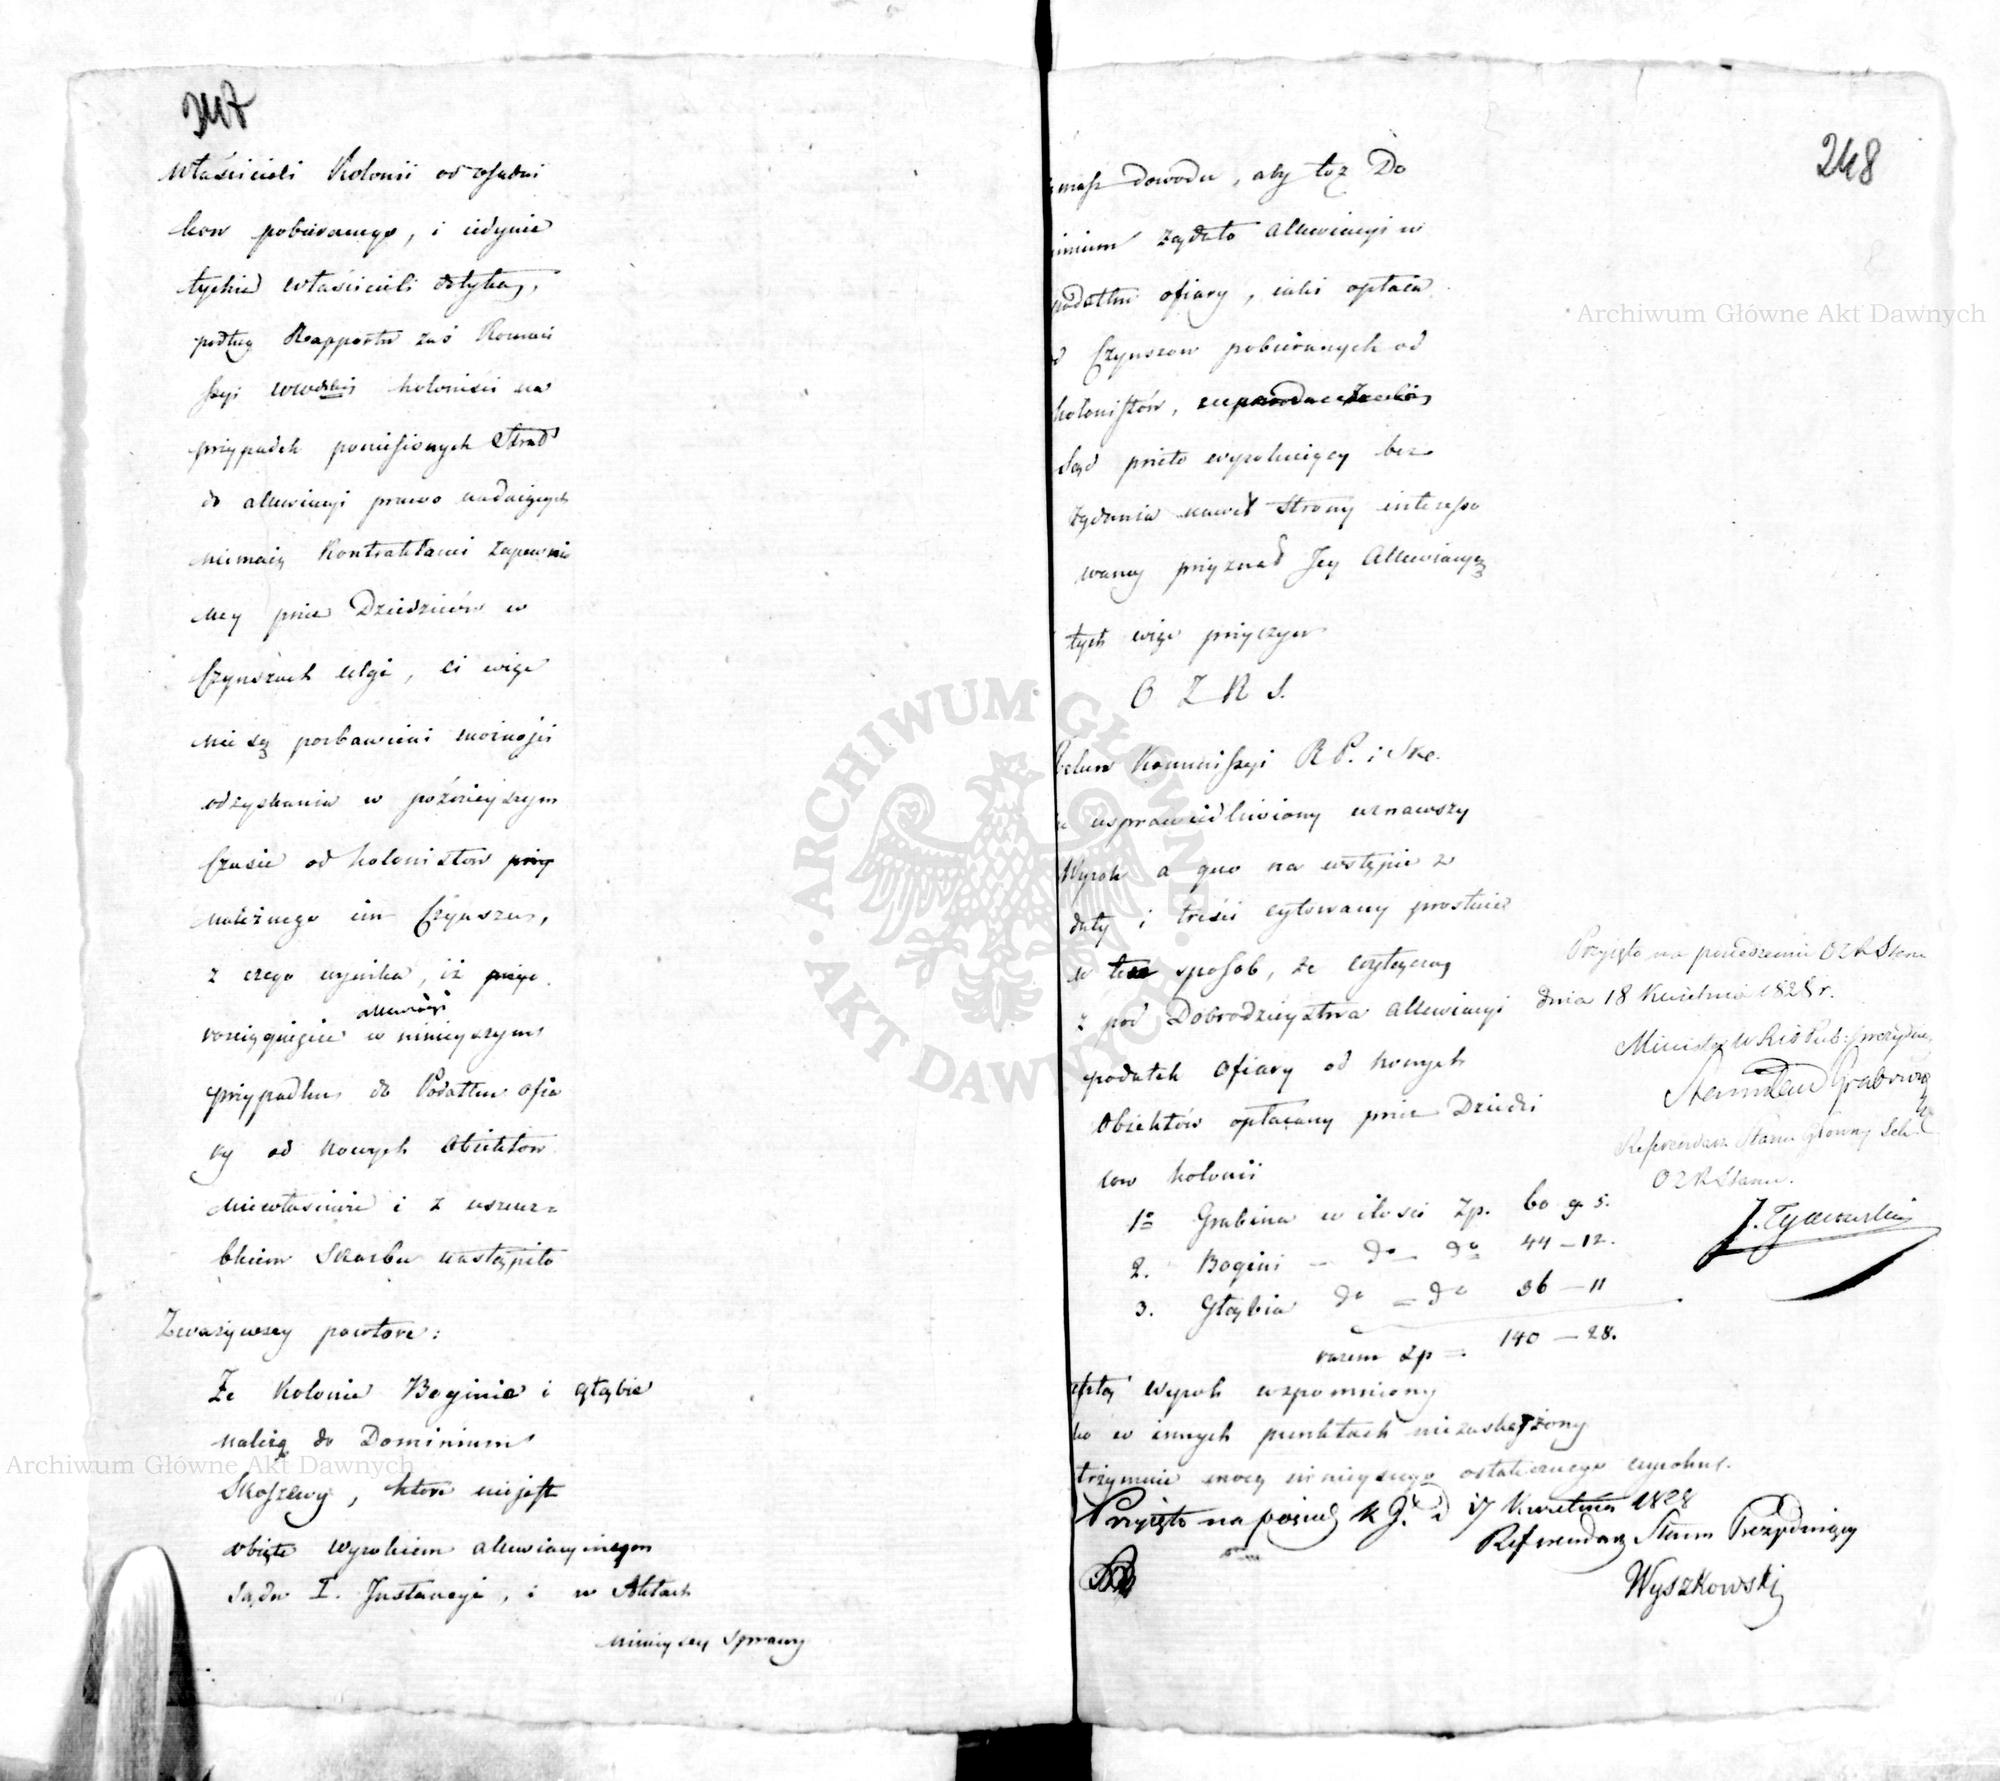 247
właścicieli Kolonii od osadni
kow pobieranego, i iedynie
tychże właścicieli dotyka,
podług Rapportu zaś Kommi
ssyi Wwdzkiey koloniści na
przypadek poniesionych Strat
do allewiacyi prawo nadaiących
niemaią Kontraktami zapewnio
ney przez Dziedziców w
Czynszach ulgi, ci więc
nie są pozbawieni możności
odzyskania w poźnieyszym
Czasie od kolonistow
należnego im Czynszu,
z czego wynika, iż
allewiacyi
rozciągnięcie w ninieyszym
przypadku do Podatku ofia
ry od nowych Obiektow
niewłaściwie i z uszczer=
bkiem Skarbu nastąpiło
Zważywszy powtore:
Że Kolonie Boginia i Głąbie
należą do Dominium
Skoszewy, ktore nie jest
obięte wyrokiem allewiacyinym
Sądu I. Instancyi, i w Aktach
ninieyszey sprawy
248
niemasz dowodu, aby toż Do
minium żądało allewiacyi w
podatku ofiary, iaki opłaca
od Czynszow pobieranych od
kolonistów,
Sąd przeto wyrokuiący bez
żądania nawet Strony interesso
waney przyznał Jey Allewiacyą
tych więc przyczyn
O Z R S.
Rekurs Kommissyi R. P. i Ska.
za usprawiedliwiony uznawszy
Wyrok a quo na wstępie z
daty i treści cytowany prostuie
w ten sposob, że wyłącza
z pod Dobrodzieystwa allewiacyi
podatek Ofiary od nowych
Obiektów opłacany przez Dziedzi
cow kolonii
1º Grabina w ilości Zp. 60 g. 5.
2. Bogini — dº dº 44 — 12.
3. Głąbia dº = dº 36 — 11
razem Zp =. 140 — 28.
resztę wyrok wspomniony
iako w innych punktach niezaskarżony
utrzymuie mocą ninieyszego ostatecznego wyroku.
Przyięto na posied. K. G. d 17 Kwietnia 1828
Referendarz Stanu Prezyduiący
Wyszkowski
Przyięto na posiedzeniu OZR Stanu
dnia 18 Kwietnia 1828 r.
Minister W R i O Pub: Prezyduiący
Stanisław Grabowski
Referendarz Stanu Główny Sek.
OZR Stanu.
J. Tymowski
Archiwum Główne Akt Dawnych
Archiwum Główne Akt Dawnych
ARCHIWUM GŁÓWNE · AKT DAWNYCH ·